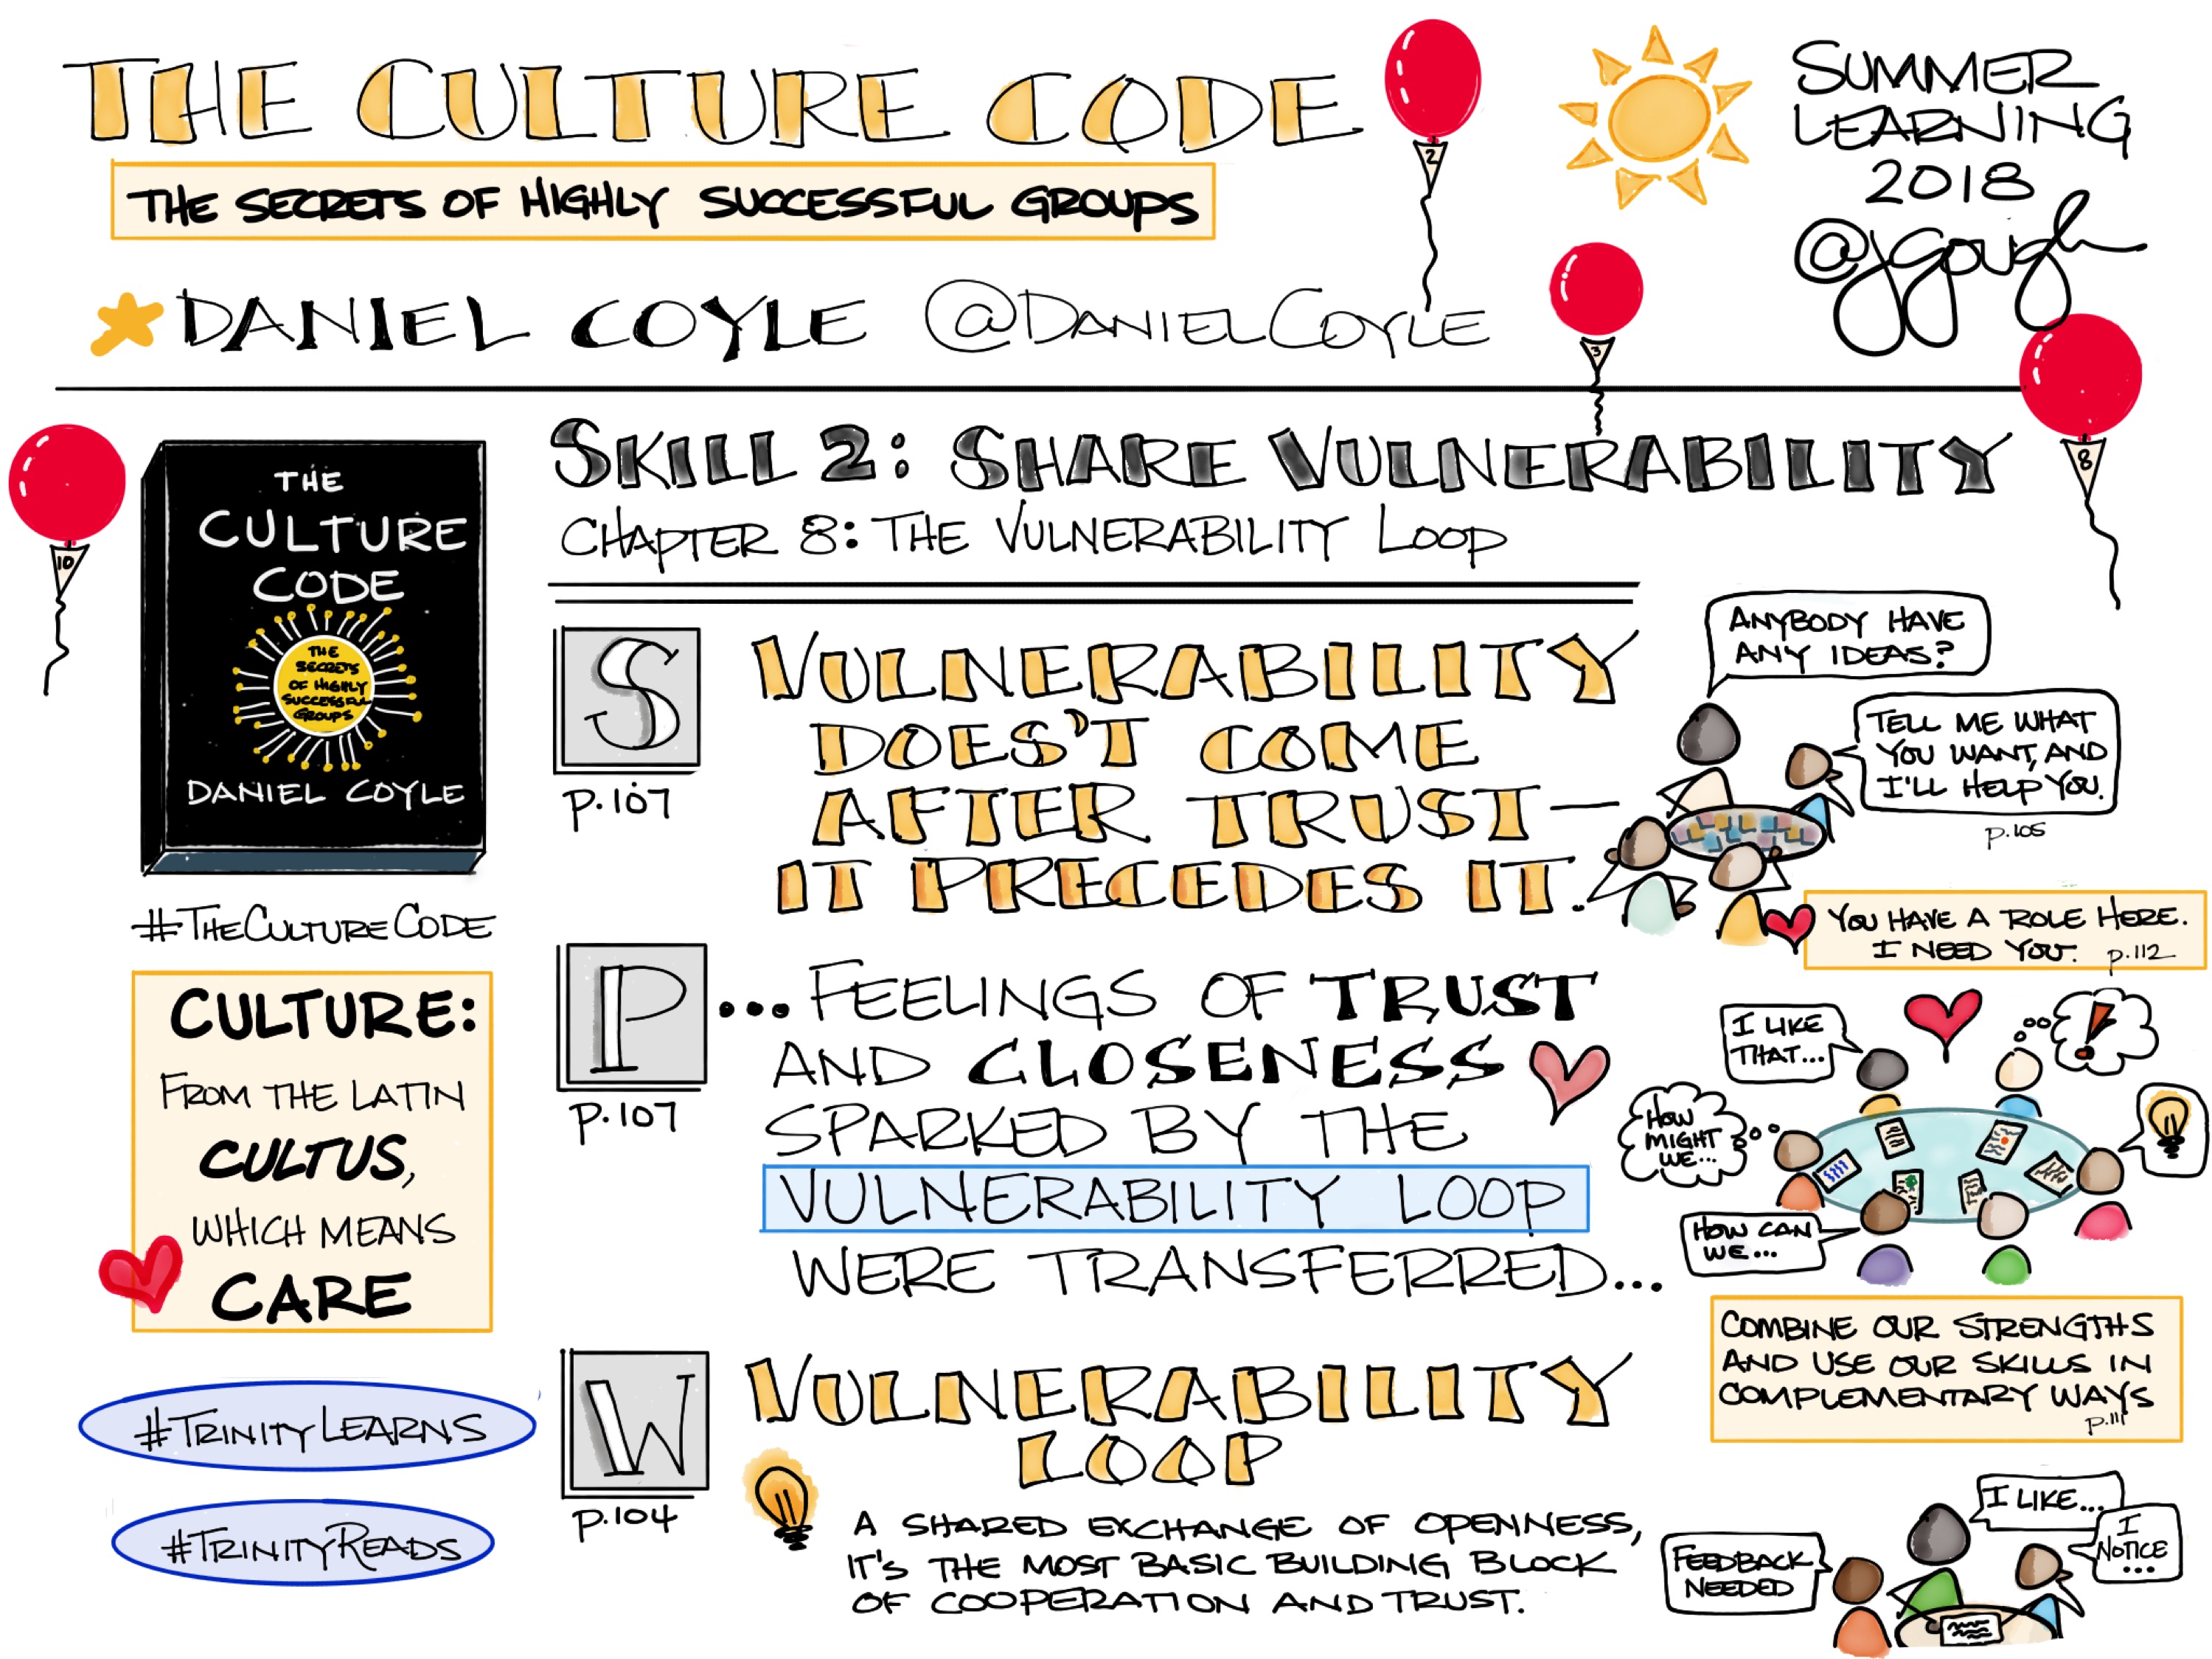 THE CULTURE CODE
THE SECRETS OF HIGHLY SUCCESSFUL GROUPS
DANIEL COYLE @DANIELCOYLE
2
SUMMER
LEARNING
2018
@jgough
3
8
10
THE
CULTURE
CODE
THE
SECRETS
OF HIGHLY
SUCCESSFUL
GROUPS
DANIEL COYLE
#THECULTURECODE
CULTURE:
FROM THE LATIN
CULTUS,
WHICH MEANS
CARE
#TRINITYLEARNS
#TRINITYREADS
SKILL 2: SHARE VULNERABILITY
CHAPTER 8: THE VULNERABILITY LOOP
S
P.107
VULNERABILITY
DOES'T COME
AFTER TRUST—
IT PRECEDES IT.
P
P.107
...FEELINGS OF TRUST
AND CLOSENESS
SPARKED BY THE
VULNERABILITY LOOP
WERE TRANSFERRED...
W
P.104
VULNERABILITY
LOOP
A SHARED EXCHANGE OF OPENNESS,
IT'S THE MOST BASIC BUILDING BLOCK
OF COOPERATION AND TRUST.
ANYBODY HAVE
ANY IDEAS?
TELL ME WHAT
YOU WANT, AND
I'LL HELP YOU.
P.105
YOU HAVE A ROLE HERE.
I NEED YOU. P.112
I LIKE
THAT...
!
HOW
MIGHT
WE...
HOW CAN
WE...
COMBINE OUR STRENGTHS
AND USE OUR SKILLS IN
COMPLEMENTARY WAYS
P.111
I LIKE...
I
NOTICE
...
FEEDBACK
NEEDED